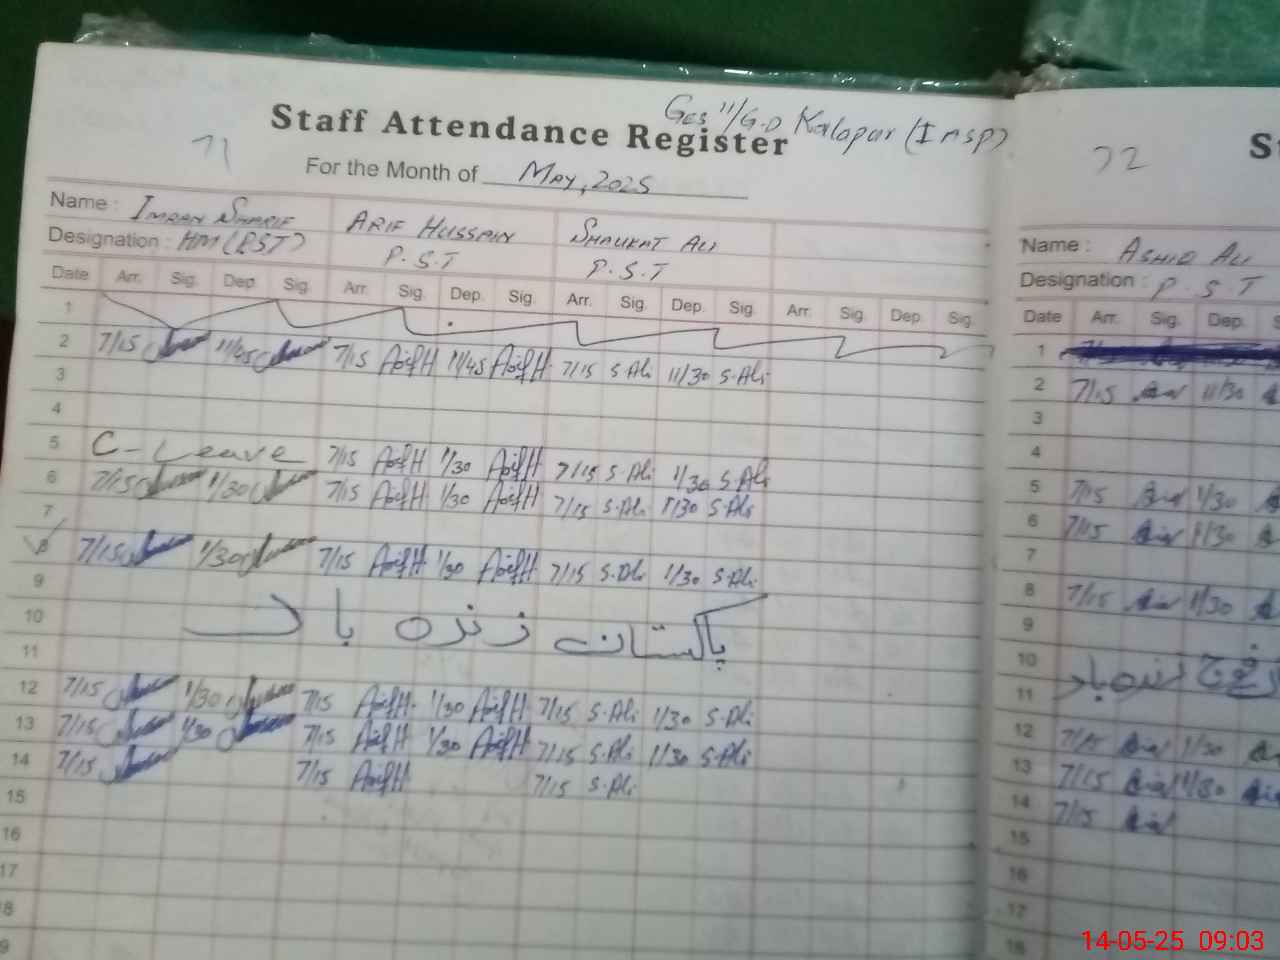 Staff Attendance Register
71
For the Month of May, 2025
Name : Imran Sharif Arif Hussain Shaukat Ali
Designation : HM (PST) P.S.T P.S.T
Date Arr. Sig. Dep. Sig. Arr. Sig. Dep. Sig. Arr. Sig. Dep. Sig. Arr. Sig. Dep. Sig.
1
2 7/15 11/45 7/15 Arif H 11/45 Arif H 7/15 S.Ali 11/30 S.Ali
3
4
5 C-Leave 7/15 Arif H 1/30 Arif H 7/15 S.Ali 1/30 S.Ali
6 7/15 1/30 7/15 Arif H 1/30 Arif H 7/15 S.Ali 1/30 S.Ali
7
8 7/15 1/30 7/15 Arif H 1/30 Arif H 7/15 S.Ali 1/30 S.Ali
9
10 پاکستان زندہ باد
11
12 7/15 1/30 7/15 Arif H 1/30 Arif H 7/15 S.Ali 1/30 S.Ali
13 7/15 1/30 7/15 Arif H 1/30 Arif H 7/15 S.Ali 1/30 S.Ali
14 7/15 7/15 Arif H 7/15 S.Ali
15
16
17
8
9
72
Name : Ali
Designation : P.S.T
Date Arr. Sig. Dep.
1
2 7/15 11/30
3
4
5 7/15 1/30
6 7/15 1/30
7
8 7/15 1/30
9
10 فوج زندہ باد
11
12 7/15 1/30
13 7/15 1/30
14 7/15
15
16
17
18
14-05-25 09:03